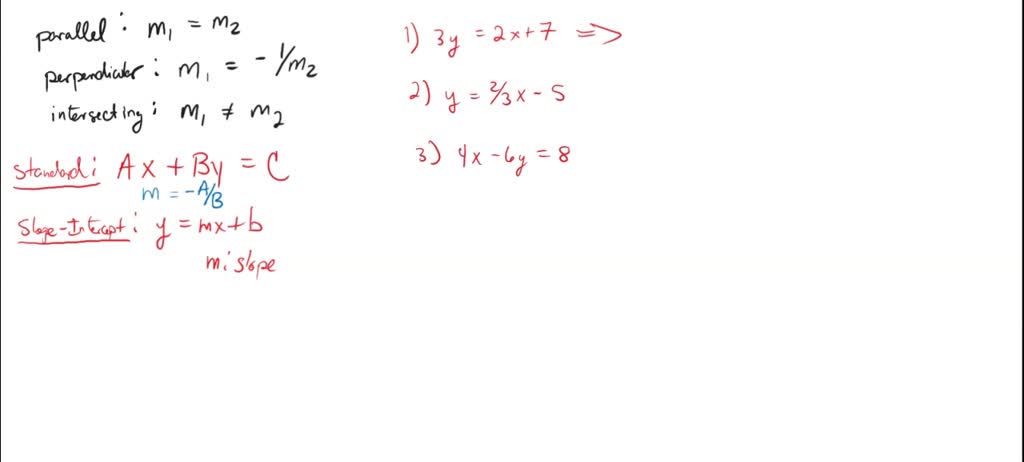 parallel : m₁ = m₂
perpendicular : m₁ = -1/m₂
intersecting : m₁ ≠ m₂
Standard : Ax + By = C
m = -A/B
Slope-Intercept : y = mx+b
m : slope
1) 3y = 2x+7 =>
2) y = 2/3x - 5
3) 4x - 6y = 8